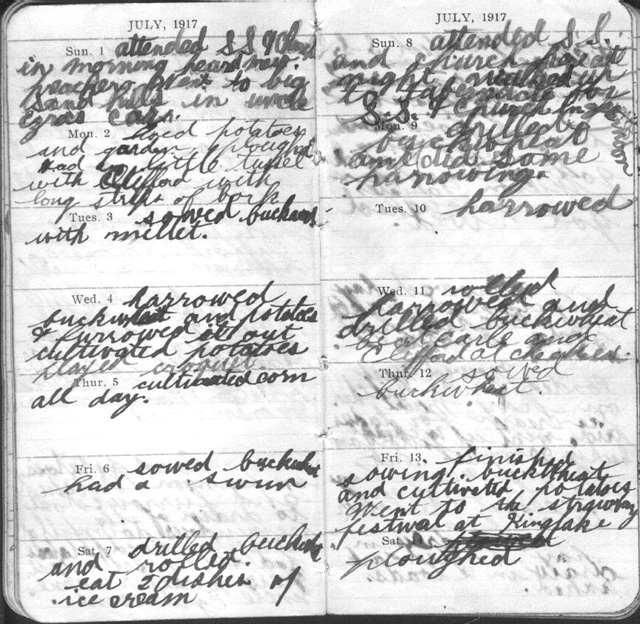 JULY, 1917
Sun. 1 attended S.S. & Church
in morning heard new
preacher. Went to big
sand hills in uncle
Ezras car.
Mon. 2 hoed potatoes
and garden, ploughed
had a little tussel
with Clifford with
long strips of bark
Tues. 3 sowed buckwheat
with millet.
Wed. 4 harrowed
buckwheat and potatoes
& furrowed it out
cultivated potatoes
played
Thur. 5 cultivated corn
all day.
Fri. 6 sowed buckwheat
had a swim
Sat. 7 drilled buckwheat
and rolled.
eat 2 dishes of
ice cream
JULY, 1917
Sun. 8 attended S.S.
and church
night walked up
to tabernacle for
S.S. & Church
Mon. 9 drilled
buckwheat
and did some
harrowing.
Tues. 10 harrowed
Wed. 11 rolled
harrowed and
drilled buckwheat
beat Earle and
Clifford at checkers.
Thur. 12 sowed
buckwheat.
Fri. 13. finished
sowing buckwheat
and cultivated potatoes
Went to the strawberry
festival at Kinglake
Sat. 14
ploughed